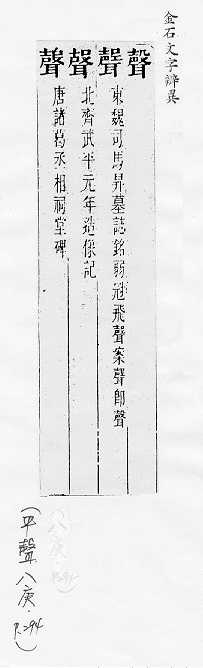 金石文字辨異
聲 聲 聲 聲
東魏司馬昇墓誌銘弱冠飛聲案聲即聲
北齊武平元年造像記
唐諸葛丞相祠堂碑
(平聲八庚.P.294)
(八庚.P.294)